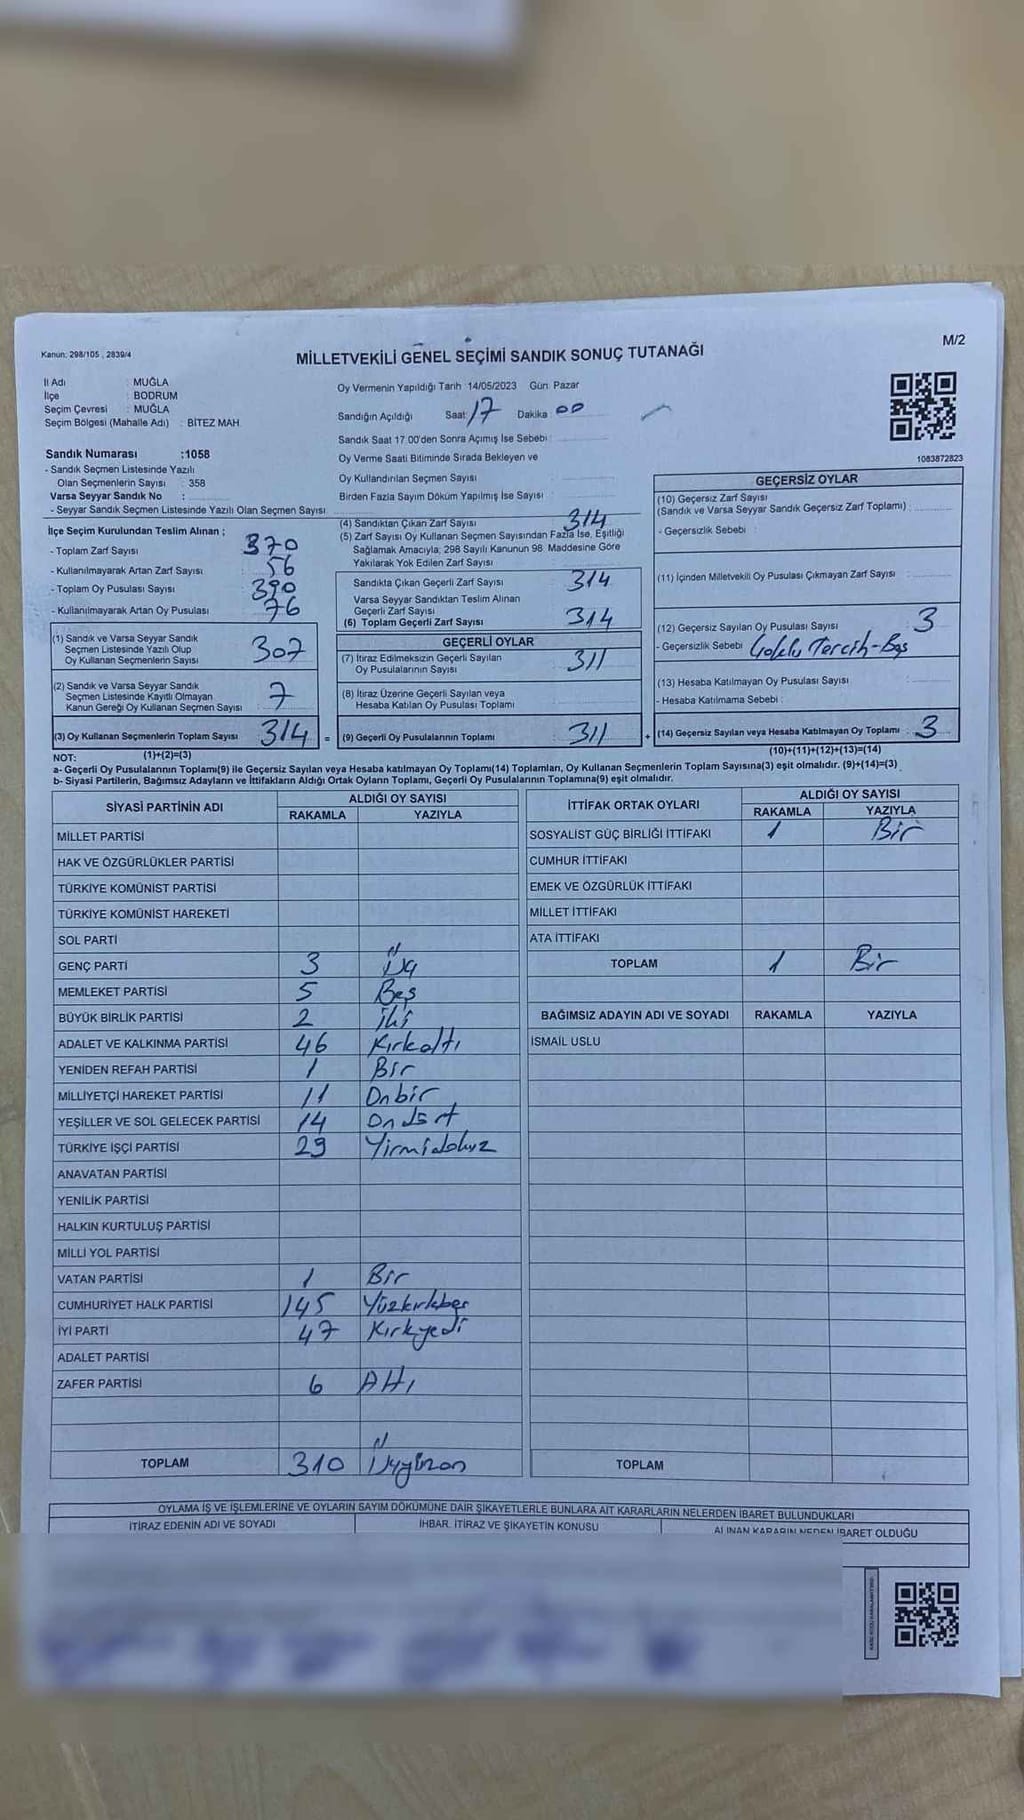 M/2
Kanun: 298/105 , 2839/4
MİLLETVEKİLİ GENEL SEÇİMİ SANDIK SONUÇ TUTANAĞI
İl Adı : MUĞLA
İlçe : BODRUM
Seçim Çevresi : MUĞLA
Seçim Bölgesi (Mahalle Adı) : BİTEZ MAH.
Sandık Numarası :1058
- Sandık Seçmen Listesinde Yazılı
Olan Seçmenlerin Sayısı : 358
Varsa Seyyar Sandık No :
- Seyyar Sandık Seçmen Listesinde Yazılı Olan Seçmen Sayısı
Oy Vermenin Yapıldığı Tarih 14/05/2023 Gün: Pazar
Sandığın Açıldığı Saat: 17 Dakika 00
Sandık Saat 17.00'den Sonra Açımış İse Sebebi
Oy Verme Saati Bitiminde Sırada Bekleyen ve
Oy Kullandırılan Seçmen Sayısı
Birden Fazla Sayım Döküm Yapılmış İse Sayısı
1083872823
İlçe Seçim Kurulundan Teslim Alınan ;
- Toplam Zarf Sayısı 370
- Kullanılmayarak Artan Zarf Sayısı 56
- Toplam Oy Pusulası Sayısı 390
- Kullanılmayarak Artan Oy Pusulası 76
(1) Sandık ve Varsa Seyyar Sandık
Seçmen Listesinde Yazılı Olup
Oy Kullanan Seçmenlerin Sayısı 307
(2) Sandık ve Varsa Seyyar Sandık
Seçmen Listesinde Kayıtlı Olmayan
Kanun Gereği Oy Kullanan Seçmen Sayısı 7
(3) Oy Kullanan Seçmenlerin Toplam Sayısı 314 =
(4) Sandıktan Çıkan Zarf Sayısı 314
(5) Zarf Sayısı Oy Kullanan Seçmen Sayısından Fazla İse, Eşitliği
Sağlamak Amacıyla, 298 Sayılı Kanunun 98. Maddesine Göre
Yakılarak Yok Edilen Zarf Sayısı
Sandıkta Çıkan Geçerli Zarf Sayısı 314
Varsa Seyyar Sandıktan Teslim Alınan
Geçerli Zarf Sayısı
(6) Toplam Geçerli Zarf Sayısı 314
GEÇERLİ OYLAR
(7) İtiraz Edilmeksizin Geçerli Sayılan
Oy Pusulalarının Sayısı 311
(8) İtiraz Üzerine Geçerli Sayılan veya
Hesaba Katılan Oy Pusulası Toplamı
(9) Geçerli Oy Pusulalarının Toplamı 311 +
GEÇERSİZ OYLAR
(10) Geçersiz Zarf Sayısı
(Sandık ve Varsa Seyyar Sandık Geçersiz Zarf Toplamı) :
- Geçersizlik Sebebi :
(11) İçinden Milletvekili Oy Pusulası Çıkmayan Zarf Sayısı :
(12) Geçersiz Sayılan Oy Pusulası Sayısı 3
- Geçersizlik Sebebi Çoklu Tercih-Boş
(13) Hesaba Katılmayan Oy Pusulası Sayısı
- Hesaba Katılmama Sebebi :
(14) Geçersiz Sayılan veya Hesaba Katılmayan Oy Toplamı : 3
NOT: (1)+(2)=(3) (10)+(11)+(12)+(13)=(14)
a- Geçerli Oy Pusulalarının Toplamı(9) ile Geçersiz Sayılan veya Hesaba katılmayan Oy Toplamı(14) Toplamları, Oy Kullanan Seçmenlerin Toplam Sayısına(3) eşit olmalıdır. (9)+(14)=(3)
b- Siyasi Partilerin, Bağımsız Adayların ve İttifakların Aldığı Ortak Oyların Toplamı, Geçerli Oy Pusulalarının Toplamına(9) eşit olmalıdır.
SİYASİ PARTİNİN ADI ALDIĞI OY SAYISI
RAKAMLA YAZIYLA
MİLLET PARTİSİ
HAK VE ÖZGÜRLÜKLER PARTİSİ
TÜRKİYE KOMÜNİST PARTİSİ
TÜRKİYE KOMÜNİST HAREKETİ
SOL PARTİ
GENÇ PARTİ 3 Üç
MEMLEKET PARTİSİ 5 Beş
BÜYÜK BİRLİK PARTİSİ 2 İki
ADALET VE KALKINMA PARTİSİ 46 Kırkaltı
YENİDEN REFAH PARTİSİ 1 Bir
MİLLİYETÇİ HAREKET PARTİSİ 11 Onbir
YEŞİLLER VE SOL GELECEK PARTİSİ 14 Ondört
TÜRKİYE İŞÇİ PARTİSİ 29 Yirmidokuz
ANAVATAN PARTİSİ
YENİLİK PARTİSİ
HALKIN KURTULUŞ PARTİSİ
MİLLİ YOL PARTİSİ
VATAN PARTİSİ 1 Bir
CUMHURİYET HALK PARTİSİ 145 Yüzkırkbeş
İYİ PARTİ 47 Kırkyedi
ADALET PARTİSİ
ZAFER PARTİSİ 6 Altı
TOPLAM 310 Üçyüzon
İTTİFAK ORTAK OYLARI ALDIĞI OY SAYISI
RAKAMLA YAZIYLA
SOSYALİST GÜÇ BİRLİĞİ İTTİFAKI 1 Bir
CUMHUR İTTİFAKI
EMEK VE ÖZGÜRLÜK İTTİFAKI
MİLLET İTTİFAKI
ATA İTTİFAKI
TOPLAM 1 Bir
BAĞIMSIZ ADAYIN ADI VE SOYADI RAKAMLA YAZIYLA
İSMAİL USLU
TOPLAM
OYLAMA İŞ VE İŞLEMLERİNE VE OYLARIN SAYIM DÖKÜMÜNE DAİR ŞİKAYETLERLE BUNLARA AİT KARARLARIN NELERDEN İBARET BULUNDUKLARI
İTİRAZ EDENİN ADI VE SOYADI İHBAR, İTİRAZ VE ŞİKAYETİN KONUSU ALINAN KARARIN NEDEN İBARET OLDUĞU